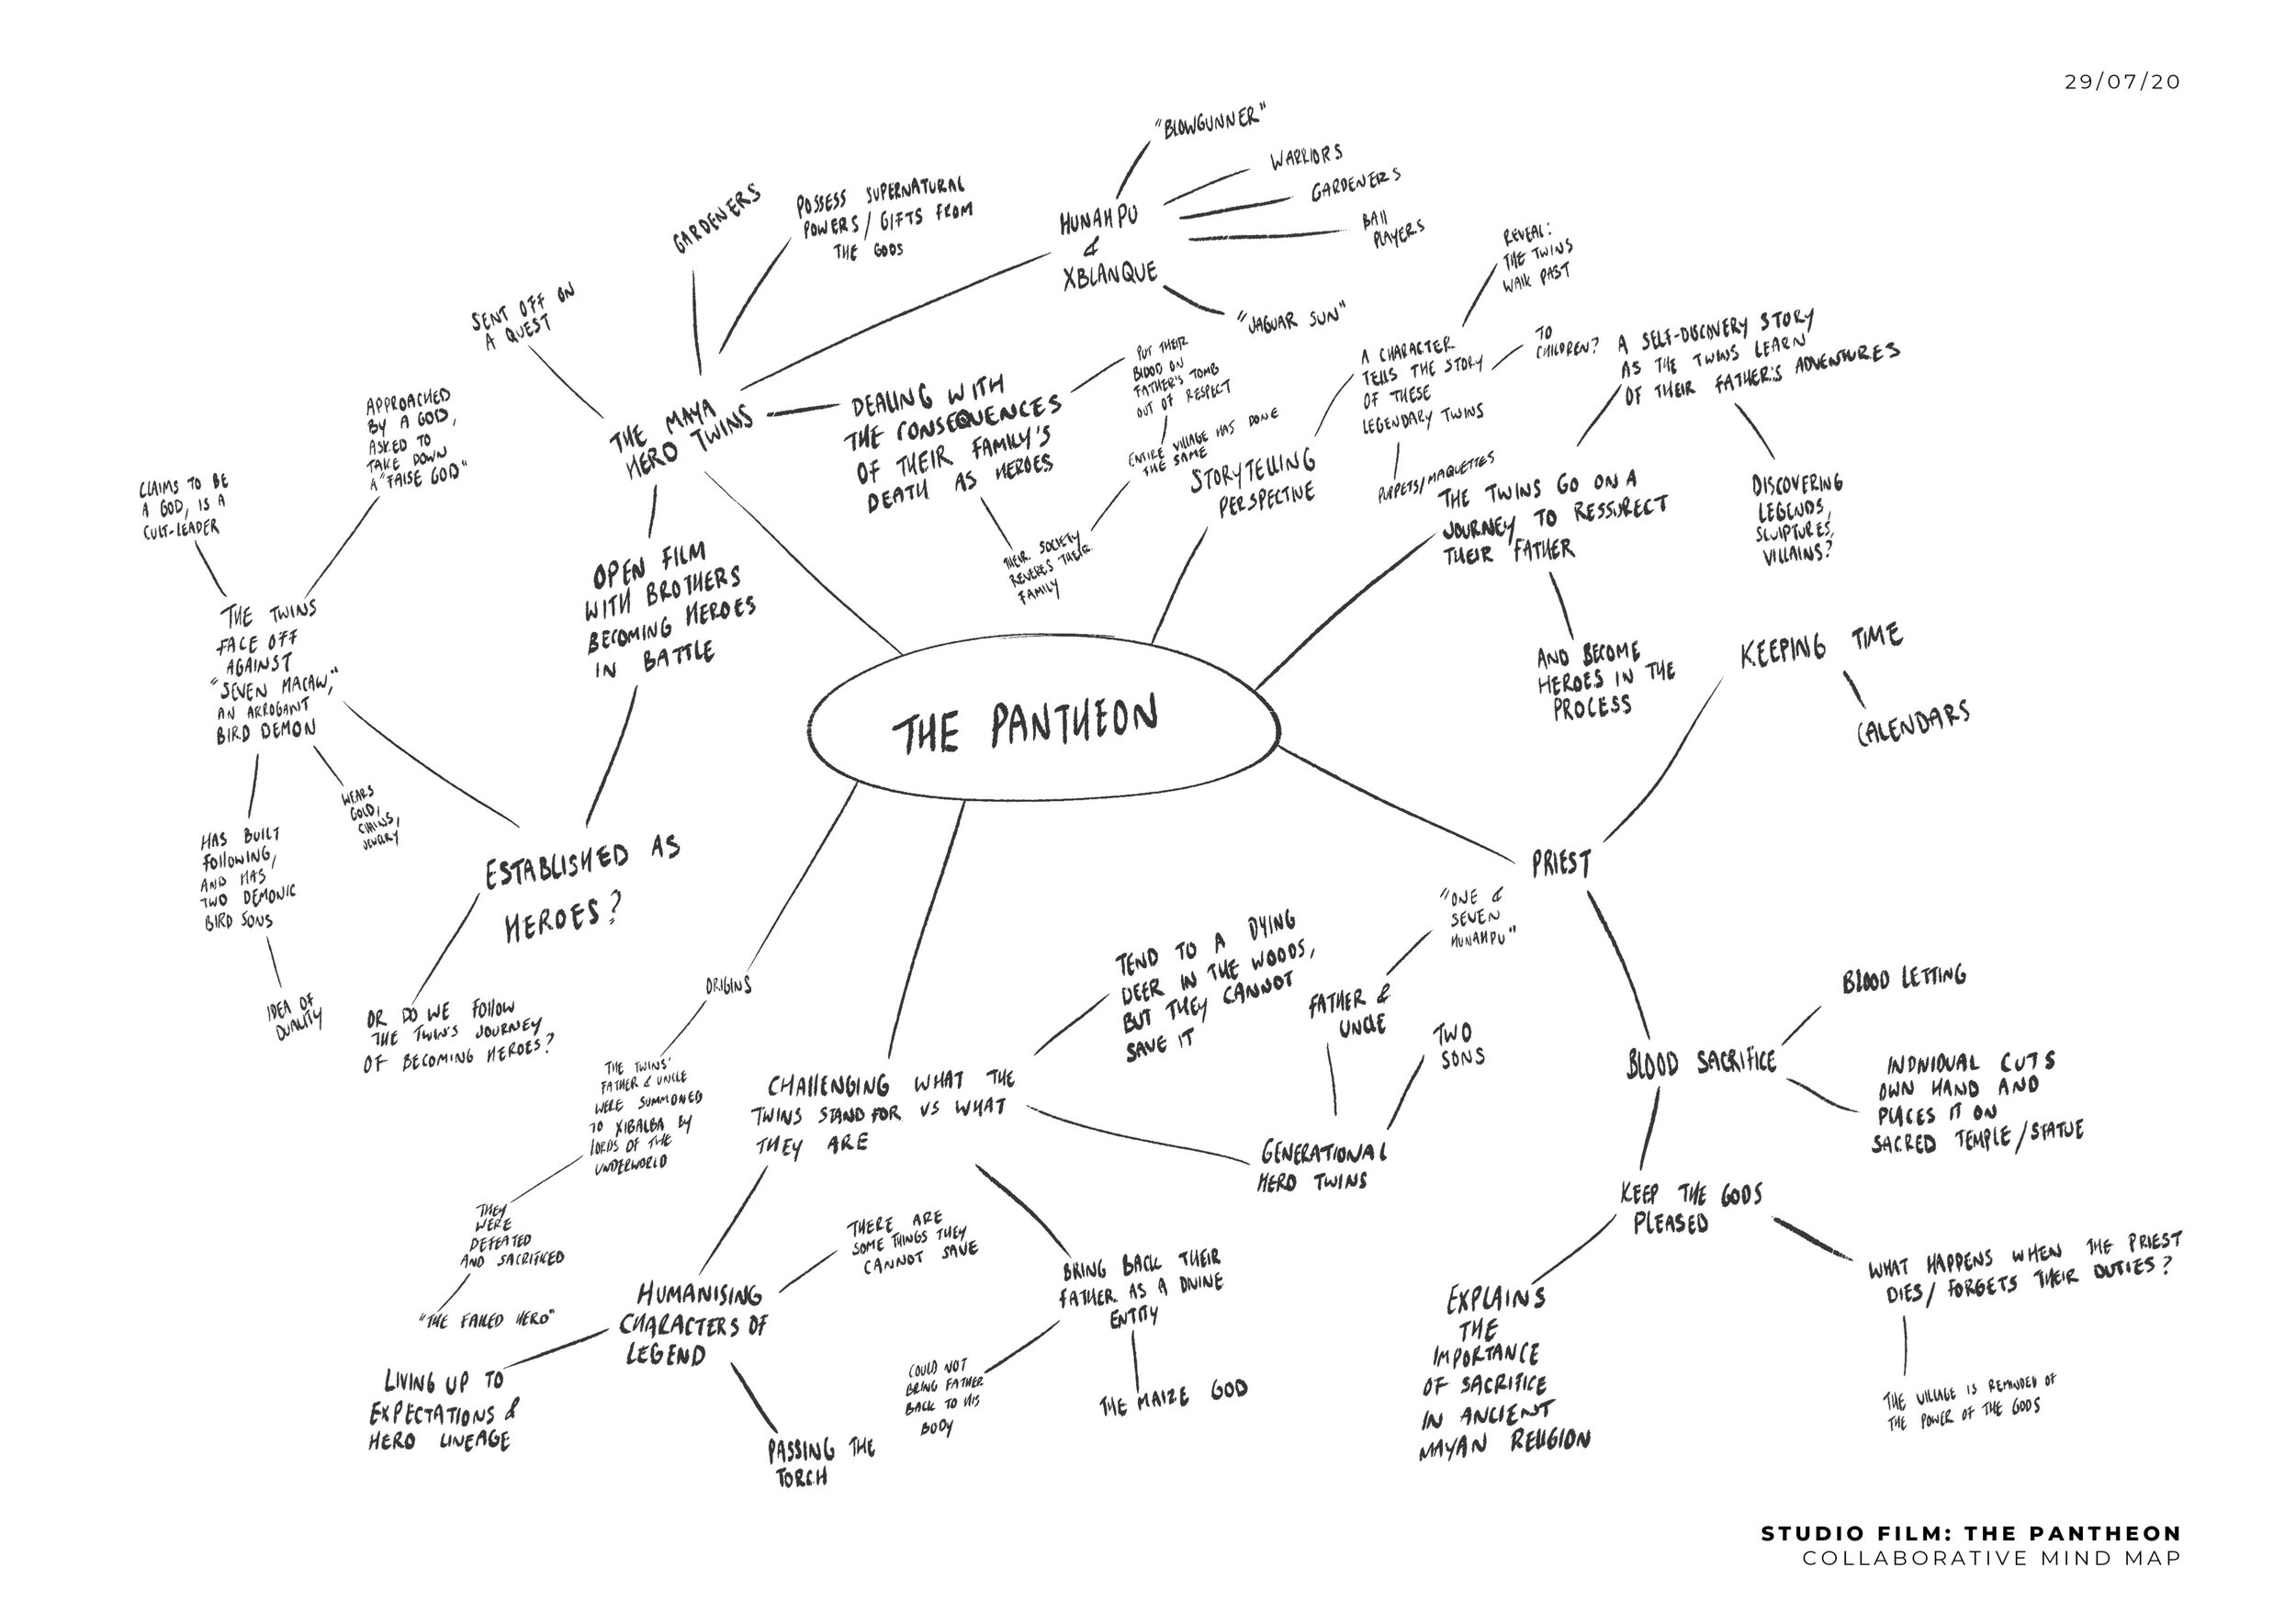 29/07/20
"BLOWGUNNER"
WARRIORS
GARDENERS
BALL
PLAYERS
HUNAHPU
&
XBLANQUE
"JAGUAR SUN"
GARDENERS
POSSESS SUPERNATURAL
POWERS/ GIFTS FROM
THE GODS
SENT OFF ON
A QUEST
THE MAYA
HERO TWINS
DEALING WITH
THE CONSEQUENCES
OF THEIR FAMILY'S
DEATH AS HEROES
PUT THEIR
BLOOD ON
FATHER'S TOMB
OUT OF RESPECT
ENTIRE VILLAGE HAS DONE
THE SAME
THEIR SOCIETY
REVERES THEIR
FAMILY
STORYTELLING
PERSPECTIVE
A CHARACTER
TELLS THE STORY
OF THESE
LEGENDARY TWINS
REVEAL:
THE TWINS
WALK PAST
TO
CHILDREN?
PUPPETS/MAQUETTES
A SELF-DISCOVERY STORY
AS THE TWINS LEARN
OF THEIR FATHER'S ADVENTURES
THE TWINS GO ON A
JOURNEY TO RESSURECT
THEIR FATHER
DISCOVERING
LEGENDS,
SCULPTURES,
VILLAINS?
AND BECOME
HEROES IN THE
PROCESS
APPROACHED
BY A GOD,
ASKED TO
TAKE DOWN
A "FALSE GOD"
CLAIMS TO BE
A GOD, IS A
CULT-LEADER
THE TWINS
FACE OFF
AGAINST
"SEVEN MACAW,"
AN ARROGANT
BIRD DEMON
WEARS
GOLD,
CHAINS,
JEWELRY
HAS BUILT
FOLLOWING,
AND HAS
TWO DEMONIC
BIRD SONS
IDEA OF
DUALITY
OPEN FILM
WITH BROTHERS
BECOMING HEROES
IN BATTLE
ESTABLISHED AS
HEROES?
OR DO WE FOLLOW
THE TWIN'S JOURNEY
OF BECOMING HEROES?
THE PANTHEON
KEEPING TIME
CALENDARS
PRIEST
BLOOD SACRIFICE
BLOOD LETTING
INDIVIDUAL CUTS
OWN HAND AND
PLACES IT ON
SACRED TEMPLE/STATUE
KEEP THE GODS
PLEASED
WHAT HAPPENS WHEN THE PRIEST
DIES/ FORGETS THEIR DUTIES?
THE VILLAGE IS REMINDED OF
THE POWER OF THE GODS
EXPLAINS
THE
IMPORTANCE
OF SACRIFICE
IN ANCIENT
MAYAN RELIGION
ORIGINS
THE TWINS'
FATHER & UNCLE
WERE SUMMONED
TO XIBALBA BY
LORDS OF THE
UNDERWORLD
THEY
WERE
DEFEATED
AND SACRIFICED
"THE FAILED HERO"
CHALLENGING WHAT THE
TWINS STAND FOR VS WHAT
THEY ARE
TEND TO A DYING
DEER IN THE WOODS,
BUT THEY CANNOT
SAVE IT
GENERATIONAL
HERO TWINS
FATHER &
UNCLE
"ONE &
SEVEN
HUNAHPU"
TWO
SONS
BRING BACK THEIR
FATHER AS A DIVINE
ENTITY
COULD NOT
BRING FATHER
BACK TO HIS
BODY
THE MAIZE GOD
HUMANISING
CHARACTERS OF
LEGEND
THERE ARE
SOME THINGS THEY
CANNOT SAVE
LIVING UP TO
EXPECTATIONS &
HERO LINEAGE
PASSING THE
TORCH
STUDIO FILM: THE PANTHEON
COLLABORATIVE MIND MAP